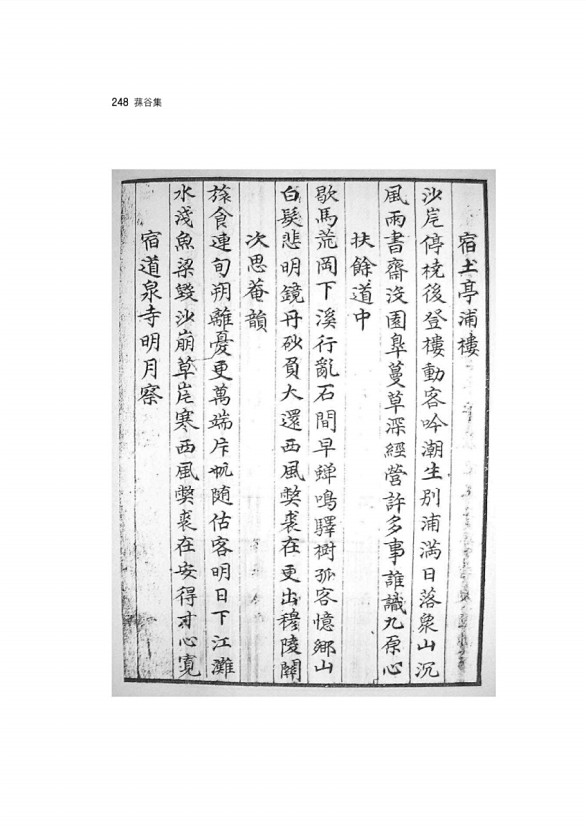 248 蓀谷集
宿土亭浦樓
沙岸停橈後登樓動客吟潮生别浦滿日落衆山沉
風雨書齋沒園皐蔓草深經營許多事誰識九原心
扶餘道中
歇馬荒岡下溪行亂石間早蟬鳴驛樹孤客憶鄉山
白髮悲明鏡丹砂負大還西風獘裘在更出穆陵關
次思菴韻
旅食連旬朔離憂更萬端片帆随估客明日下江灘
水淺魚梁毀沙崩草岸寒西風獘裘在安得寸心寬
宿道泉寺明月寮